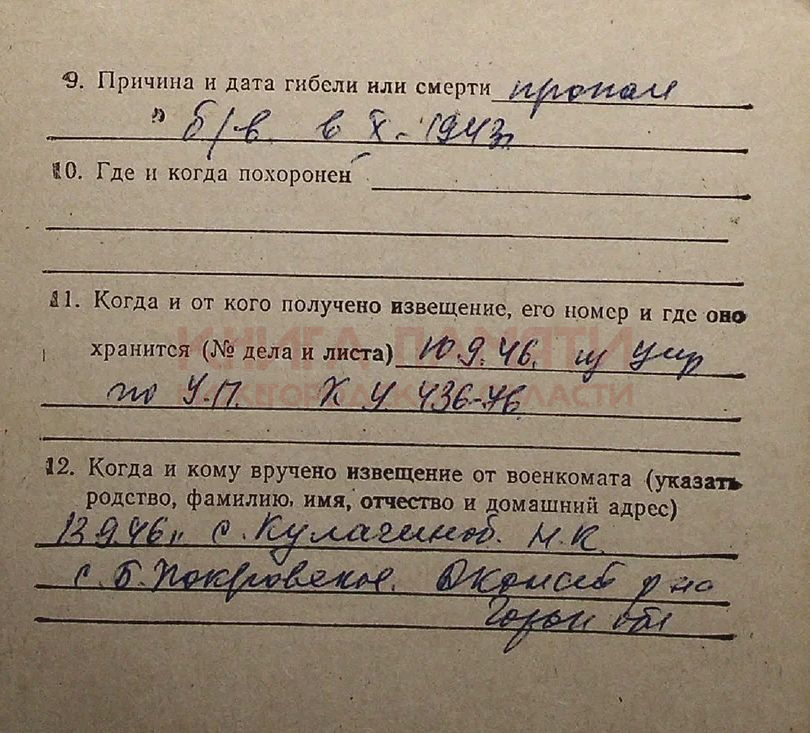 9. Причина и дата гибели или смерти пропал
б/в. в X. 1943г
10. Где и когда похоронен
11. Когда и от кого получено извещение, его номер и где оно
хранится (№ дела и листа) 10.9.46. из Упр
по У.П. 436-46
12. Когда и кому вручено извещение от военкомата (указать
родство, фамилию, имя, отчество и домашний адрес)
13.9.46г. с. Н.К.
с. Б. Покровское. р на
КНИГА ПАМЯТИ
НИЖЕГОРОДСКОЙ ОБЛАСТИ